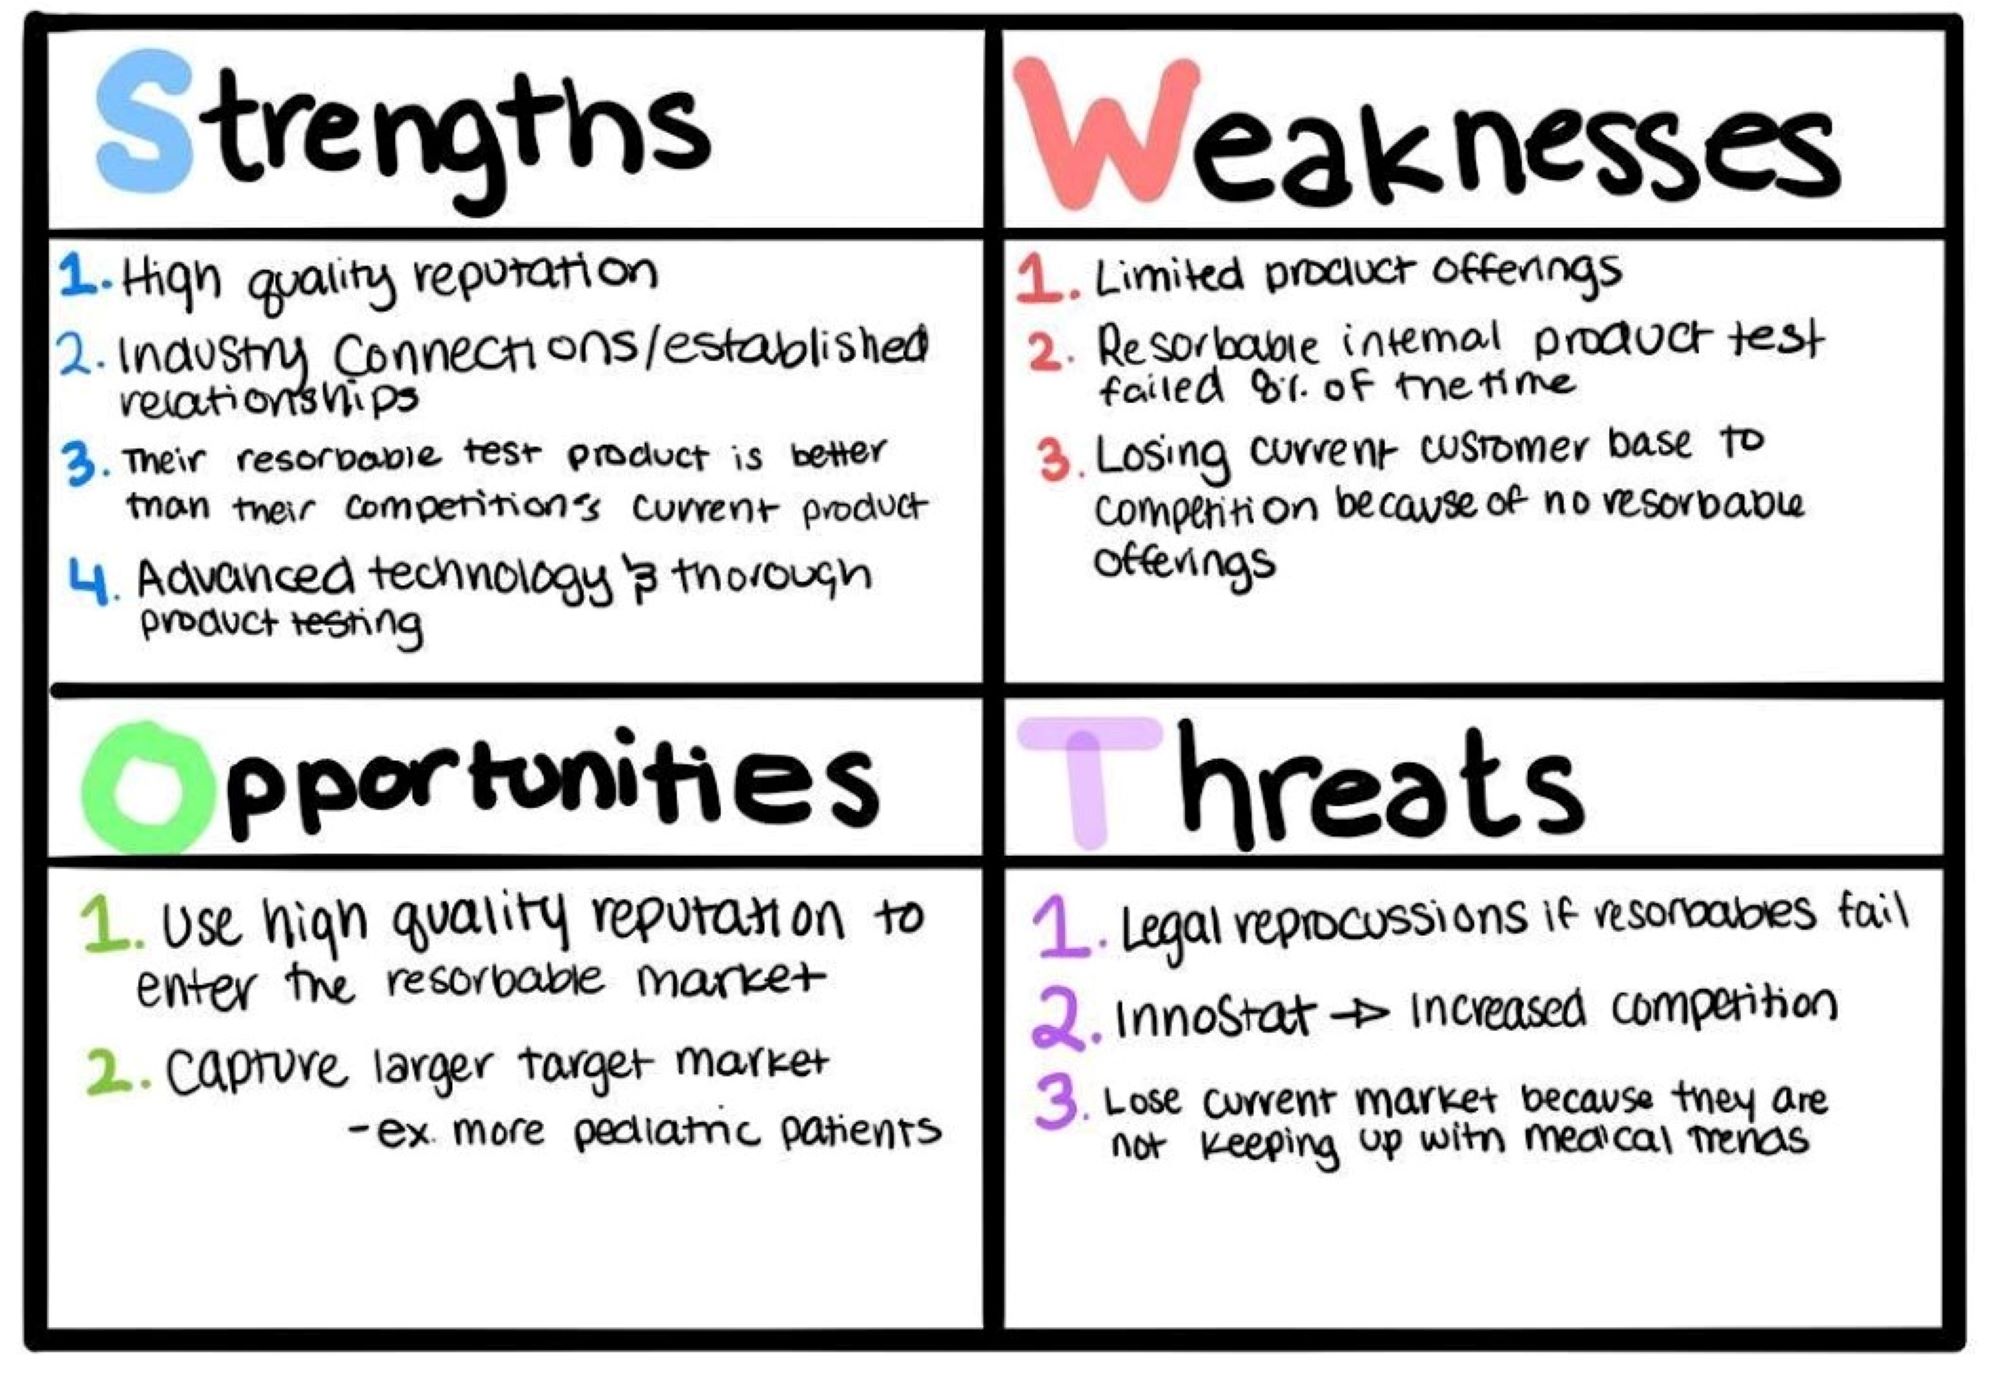 Strengths
1. High quality reputation
2. Industry Connections/established
relationships
3. Their resorbable test product is better
than their competition's current product
4. Advanced technology & thorough
product testing
Weaknesses
1. Limited product offerings
2. Resorbable internal product test
failed 8% of the time
3. Losing current customer base to
competition because of no resorbable
offerings
Opportunities
1. Use high quality reputation to
enter the resorbable market
2. Capture larger target market
-ex. more pediatric patients
Threats
1. Legal reprocussions if resorbables fail
2. InnoStat → Increased competition
3. Lose current market because they are
not keeping up with medical trends